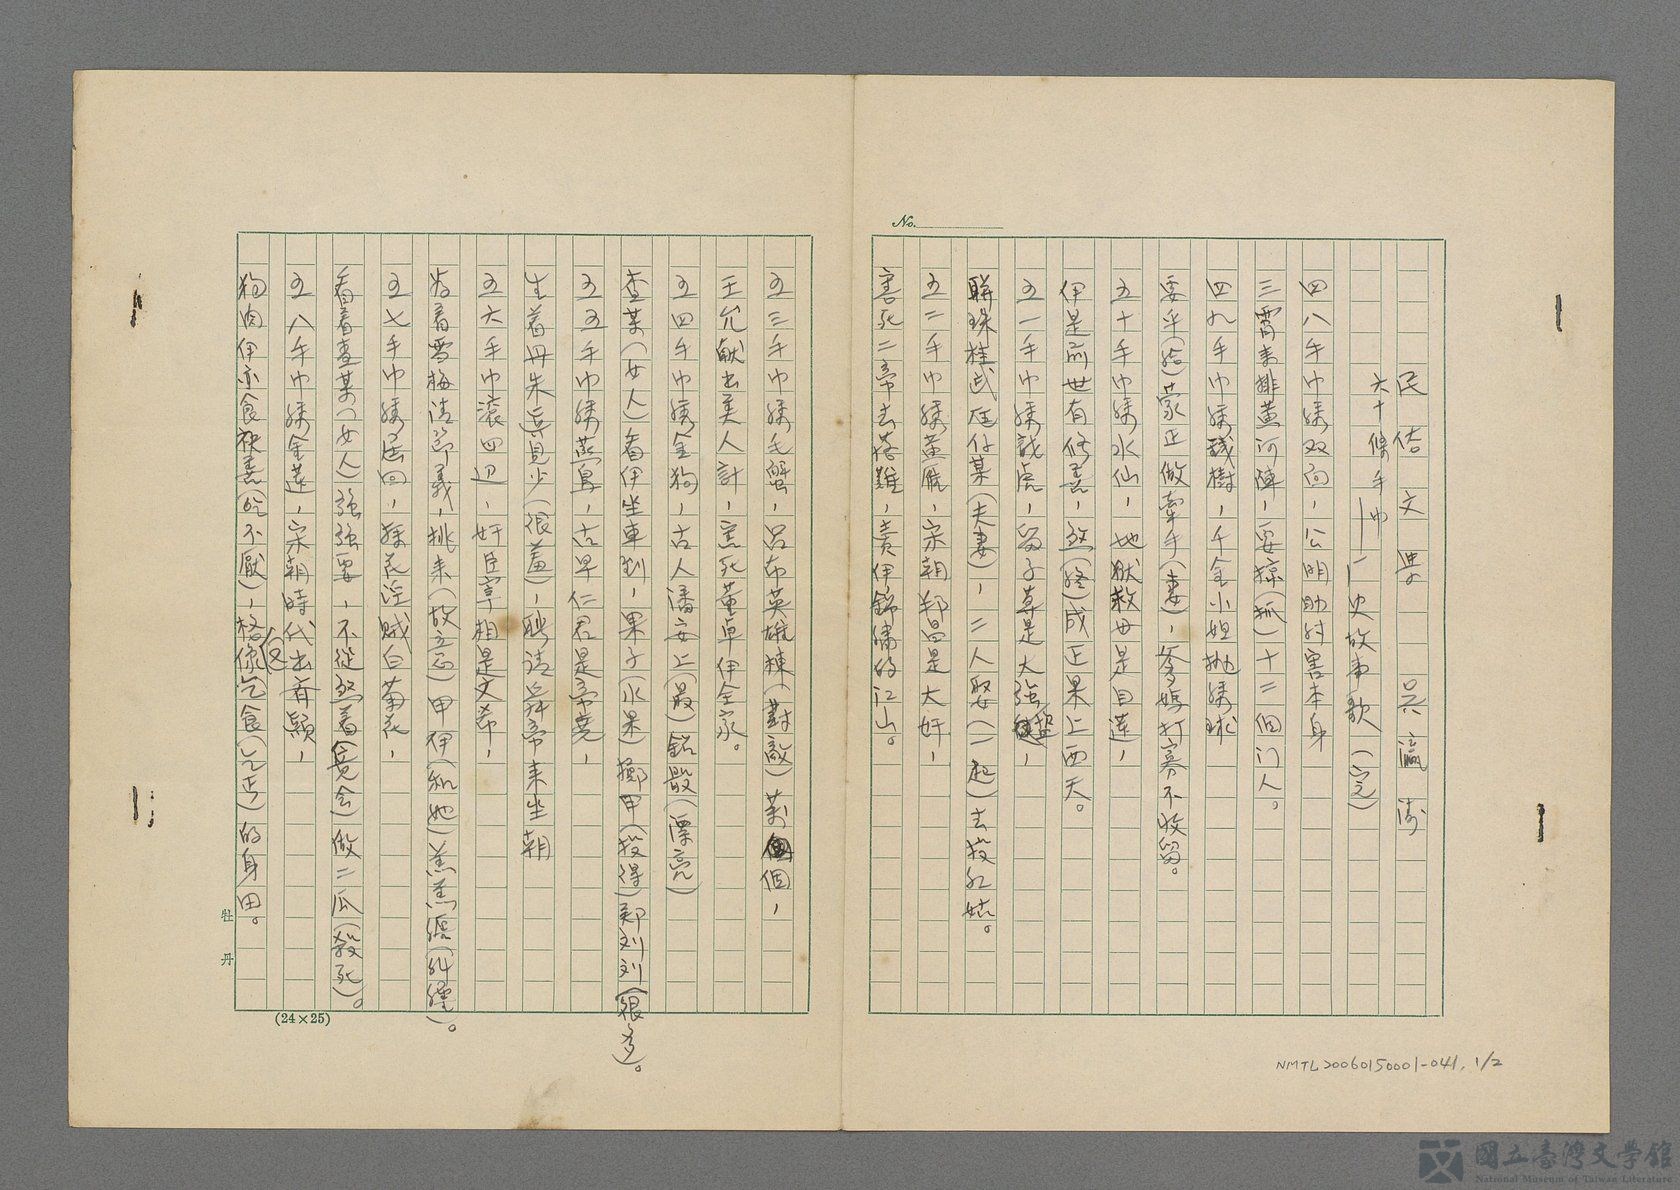 No.
民俗文學 吳瀛濤
六十條手巾——史故事歌(完)
四八手巾綉双向,公明助紂害本身
三霄来排黃河陣,妥掠(抓)十二個门人。
四九手巾綉殘樹,千金小姐抛綉球
要乎(給)蒙正做牽手(妻),爹媽打寨不收留。
五十手巾綉水仙,地獄救母是目蓮,
伊是前世有修善,煞(終)成正果上西天。
五一手巾綉龍虎,留子草是大强盜,
聯珠桂武尫仔某(夫妻),二人娶(一起)去投紅姑。
五二手巾綉黃鴈,宋朝邦昌是大奸,
害死二帝去落難,責伊錦綉的江山。
五三手巾綉毛蟹,呂布英雄棟(對敵)萬個,
王允献出美人計,害死董卓伊全家。
五四手巾綉金狗,古人潘安上(最)鉛骰(漂亮)
查某(女人)看伊坐車到,果子(水果)擲甲(投得)鄭刘刘(很多)。
五五手巾綉燕鳥,古早仁君是帝堯,
生着丹朱真見少(很羞),聘請舜帝来坐朝
五六手巾滾四辺,奸臣宰相是文希,
為着雪梅清節義,挑未(故意)甲伊(和她)羔羔纏(糾纏)。
五七手巾綉居回,採花淫賊白菊花,
看着查某(女人)强强要,不從煞着(竟会)做二瓜(殺死)。
五八手巾綉金蓮,宋朝時代出香顯,
狗肉伊亦食袂羨(吃不厭),格像(作)乞食(乞丐)的身田。
牡丹
(24×25)
NMTL20060150001-041, 1/2
國立臺灣文學館
National Museum of Taiwan Literature